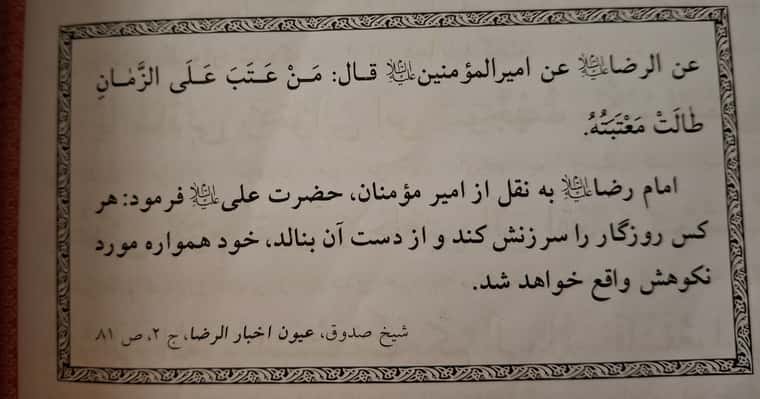 عن الرضا علیه‌السلام عن امیرالمؤمنین علیه‌السلام قال: مَنْ عَتَبَ عَلَى الزَّمَانِ
طالَتْ مَعْتَبَتُهُ.
امام رضا علیه‌السلام به نقل از امیر مؤمنان، حضرت علی علیه‌السلام فرمود: هر
کس روزگار را سرزنش کند و از دست آن بنالد، خود همواره مورد
نکوهش واقع خواهد شد.
شیخ صدوق، عیون اخبار الرضا، ج ۲، ص ۸۱